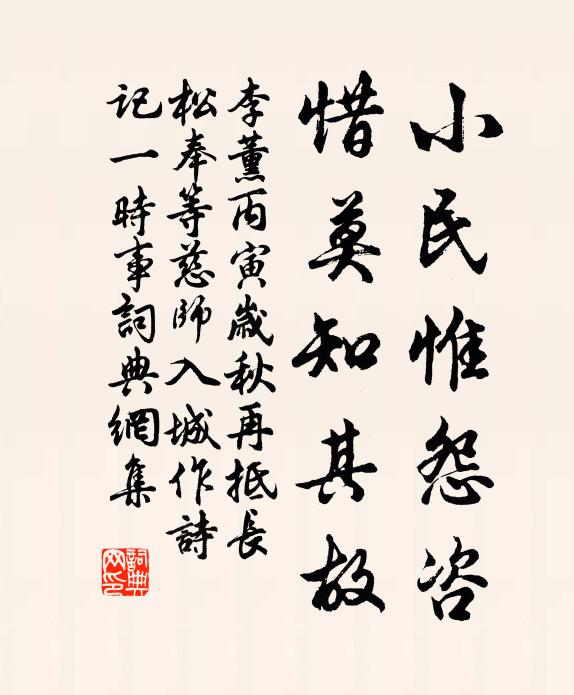 小民惟怨咨
惜莫知其故
李薰丙寅歲秋再抵長
松奉等慈師入城作詩
記一時事詞典網集
詞典
网印